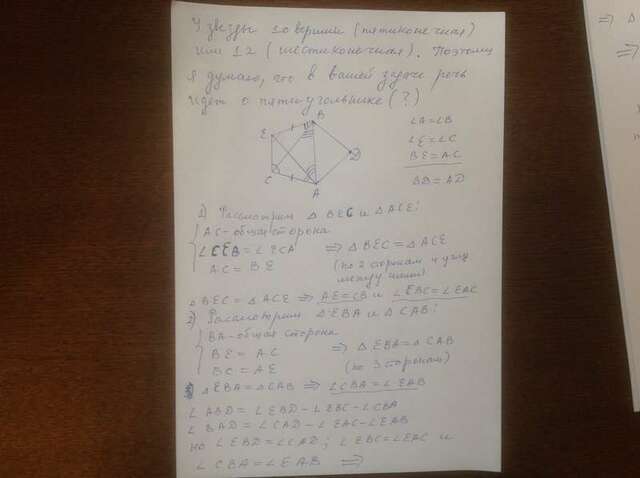 У звезды 10 вершин (пятиконечная)
или 12 (шестиконечная). Поэтому
я думаю, что в вашей задаче речь
идет о пятиугольнике (?)
B
E
D
C
A
∠A=∠B
∠E=∠C
BE=AC
DB=AD
1) Рассмотрим △BEC и △ACE:
AC-общая сторона
∠CEB=∠ECA ⇒ △BEC=△ACE
AC=BE (по 2 сторонам и углу
между ними)
△BEC=△ACE ⇒ AE=CB и ∠EBC=∠EAC
2) Рассмотрим △EBA и △CAB:
BA-общая сторона
BE=AC ⇒ △EBA=△CAB
BC=AE (по 3 сторонам)
△EBA=△CAB ⇒ ∠CBA=∠EAB
∠ABD=∠EBD-∠EBC-∠CBA
∠BAD=∠CAD-∠EAC-∠EAB
но ∠EBD=∠CAD; ∠EBC=∠EAC и
∠CBA=∠EAB ⇒